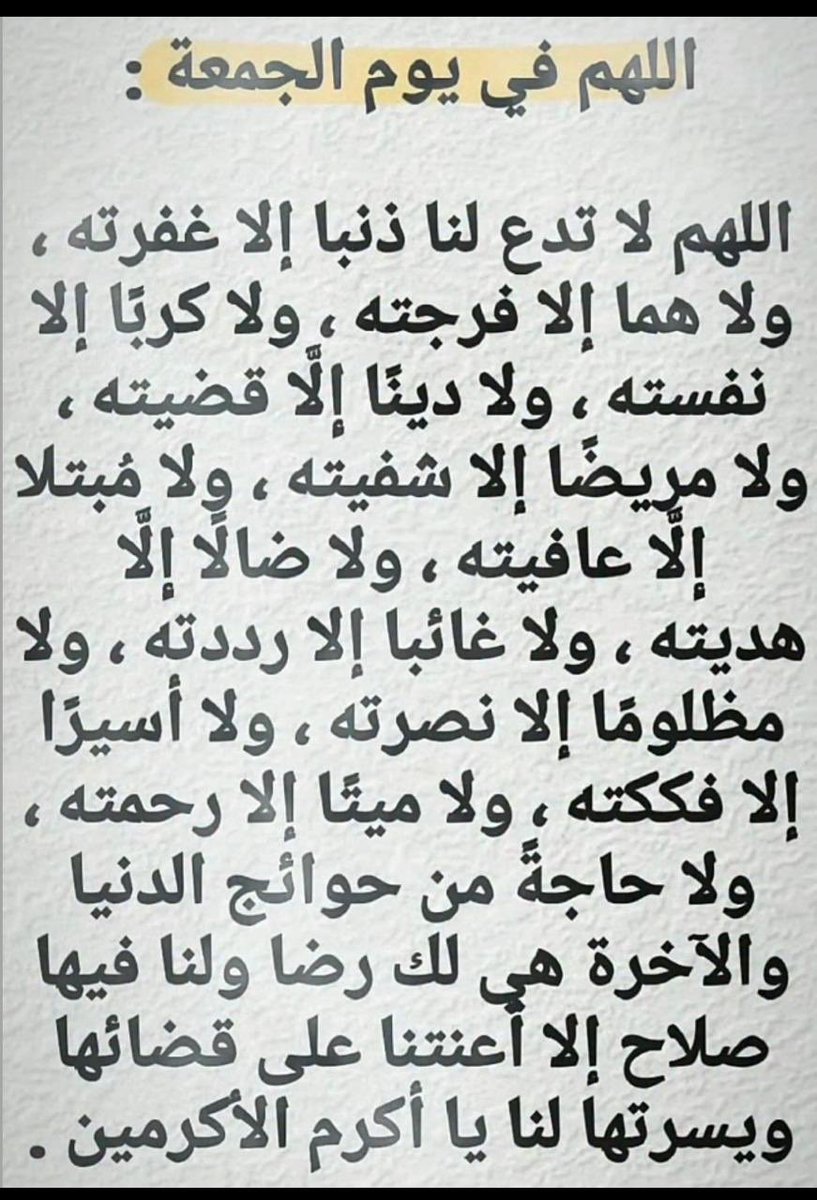 اللهم في يوم الجمعة :
اللهم لا تدع لنا ذنبا إلا غفرته ،
ولا هما إلا فرجته ، ولا كربًا إلا
نفسته ، ولا دينًا إلَّا قضيته ،
ولا مريضًا إلا شفيته ، ولا مُبتلا
إلَّا عافيته ، ولا ضالًا إلَّا
هديته ، ولا غائبا إلا رددته ، ولا
مظلومًا إلا نصرته ، ولا أسيرًا
إلا فككته ، ولا ميتًا إلا رحمته ،
ولا حاجةً من حوائج الدنيا
والآخرة هي لك رضا ولنا فيها
صلاح إلا أعنتنا على قضائها
ويسرتها لنا يا أكرم الأكرمين .